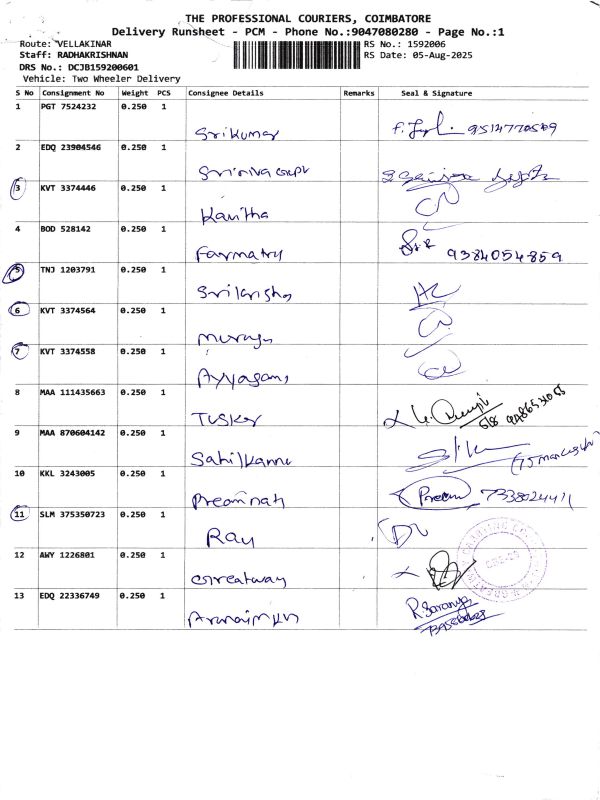 THE PROFESSIONAL COURIERS, COIMBATORE
Delivery Runsheet - PCM - Phone No.:9047080280 - Page No.:1
Route: VELLAKINAR RS No.: 1592006
Staff: RADHAKRISHNAN RS Date: 05-Aug-2025
DRS No.: DCJB159200601
Vehicle: Two Wheeler Delivery
S No Consignment No Weight PCS Consignee Details Remarks Seal & Signature
1 PGT 7524232 0.250 1
Srikumar 9514770569
2 EDQ 23904546 0.250 1
3 KVT 3374446 0.250 1
Kavitha
4 BOD 528142 0.250 1
Farmatry 9384054859
5 TNJ 1203791 0.250 1
6 KVT 3374564 0.250 1
7 KVT 3374558 0.250 1
8 MAA 111435663 0.250 1
Tusker 5/8
9 MAA 870604142 0.250 1
10 KKL 3243005 0.250 1
Preaminath Preem
11 SLM 375350723 0.250 1
Ray
12 AWY 1226801 0.250 1
Greatway
13 EDQ 22336749 0.250 1
R. Saranya